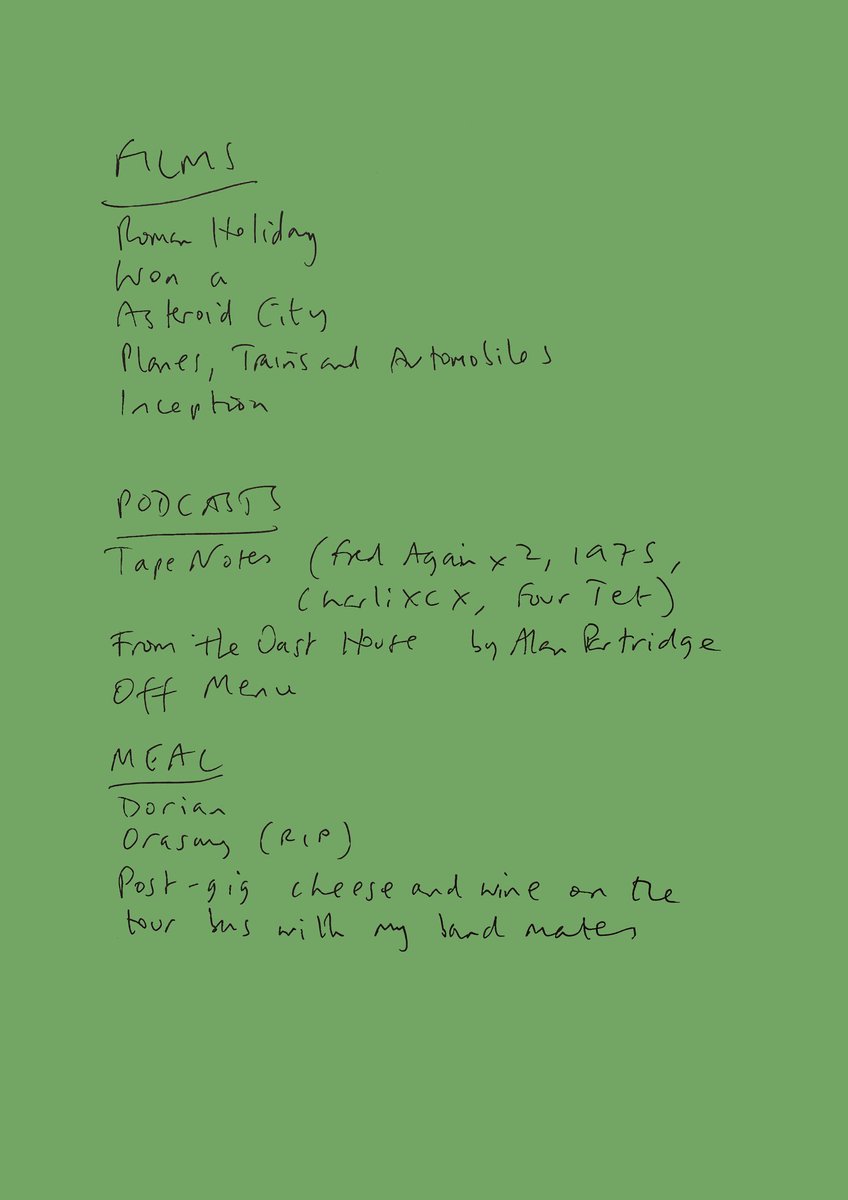 FILMS
Roman Holiday
Won a
Asteroid City
Planes, Trains and Automobiles
Inception
PODCASTS
Tape Notes (Fred Again x 2, 1975,
Charli XCX, Four Tet)
From the Oast House by Alan Partridge
Off Menu
MEAL
Dorian
Orasay (RIP)
Post-gig cheese and wine on the
tour bus with my band mates